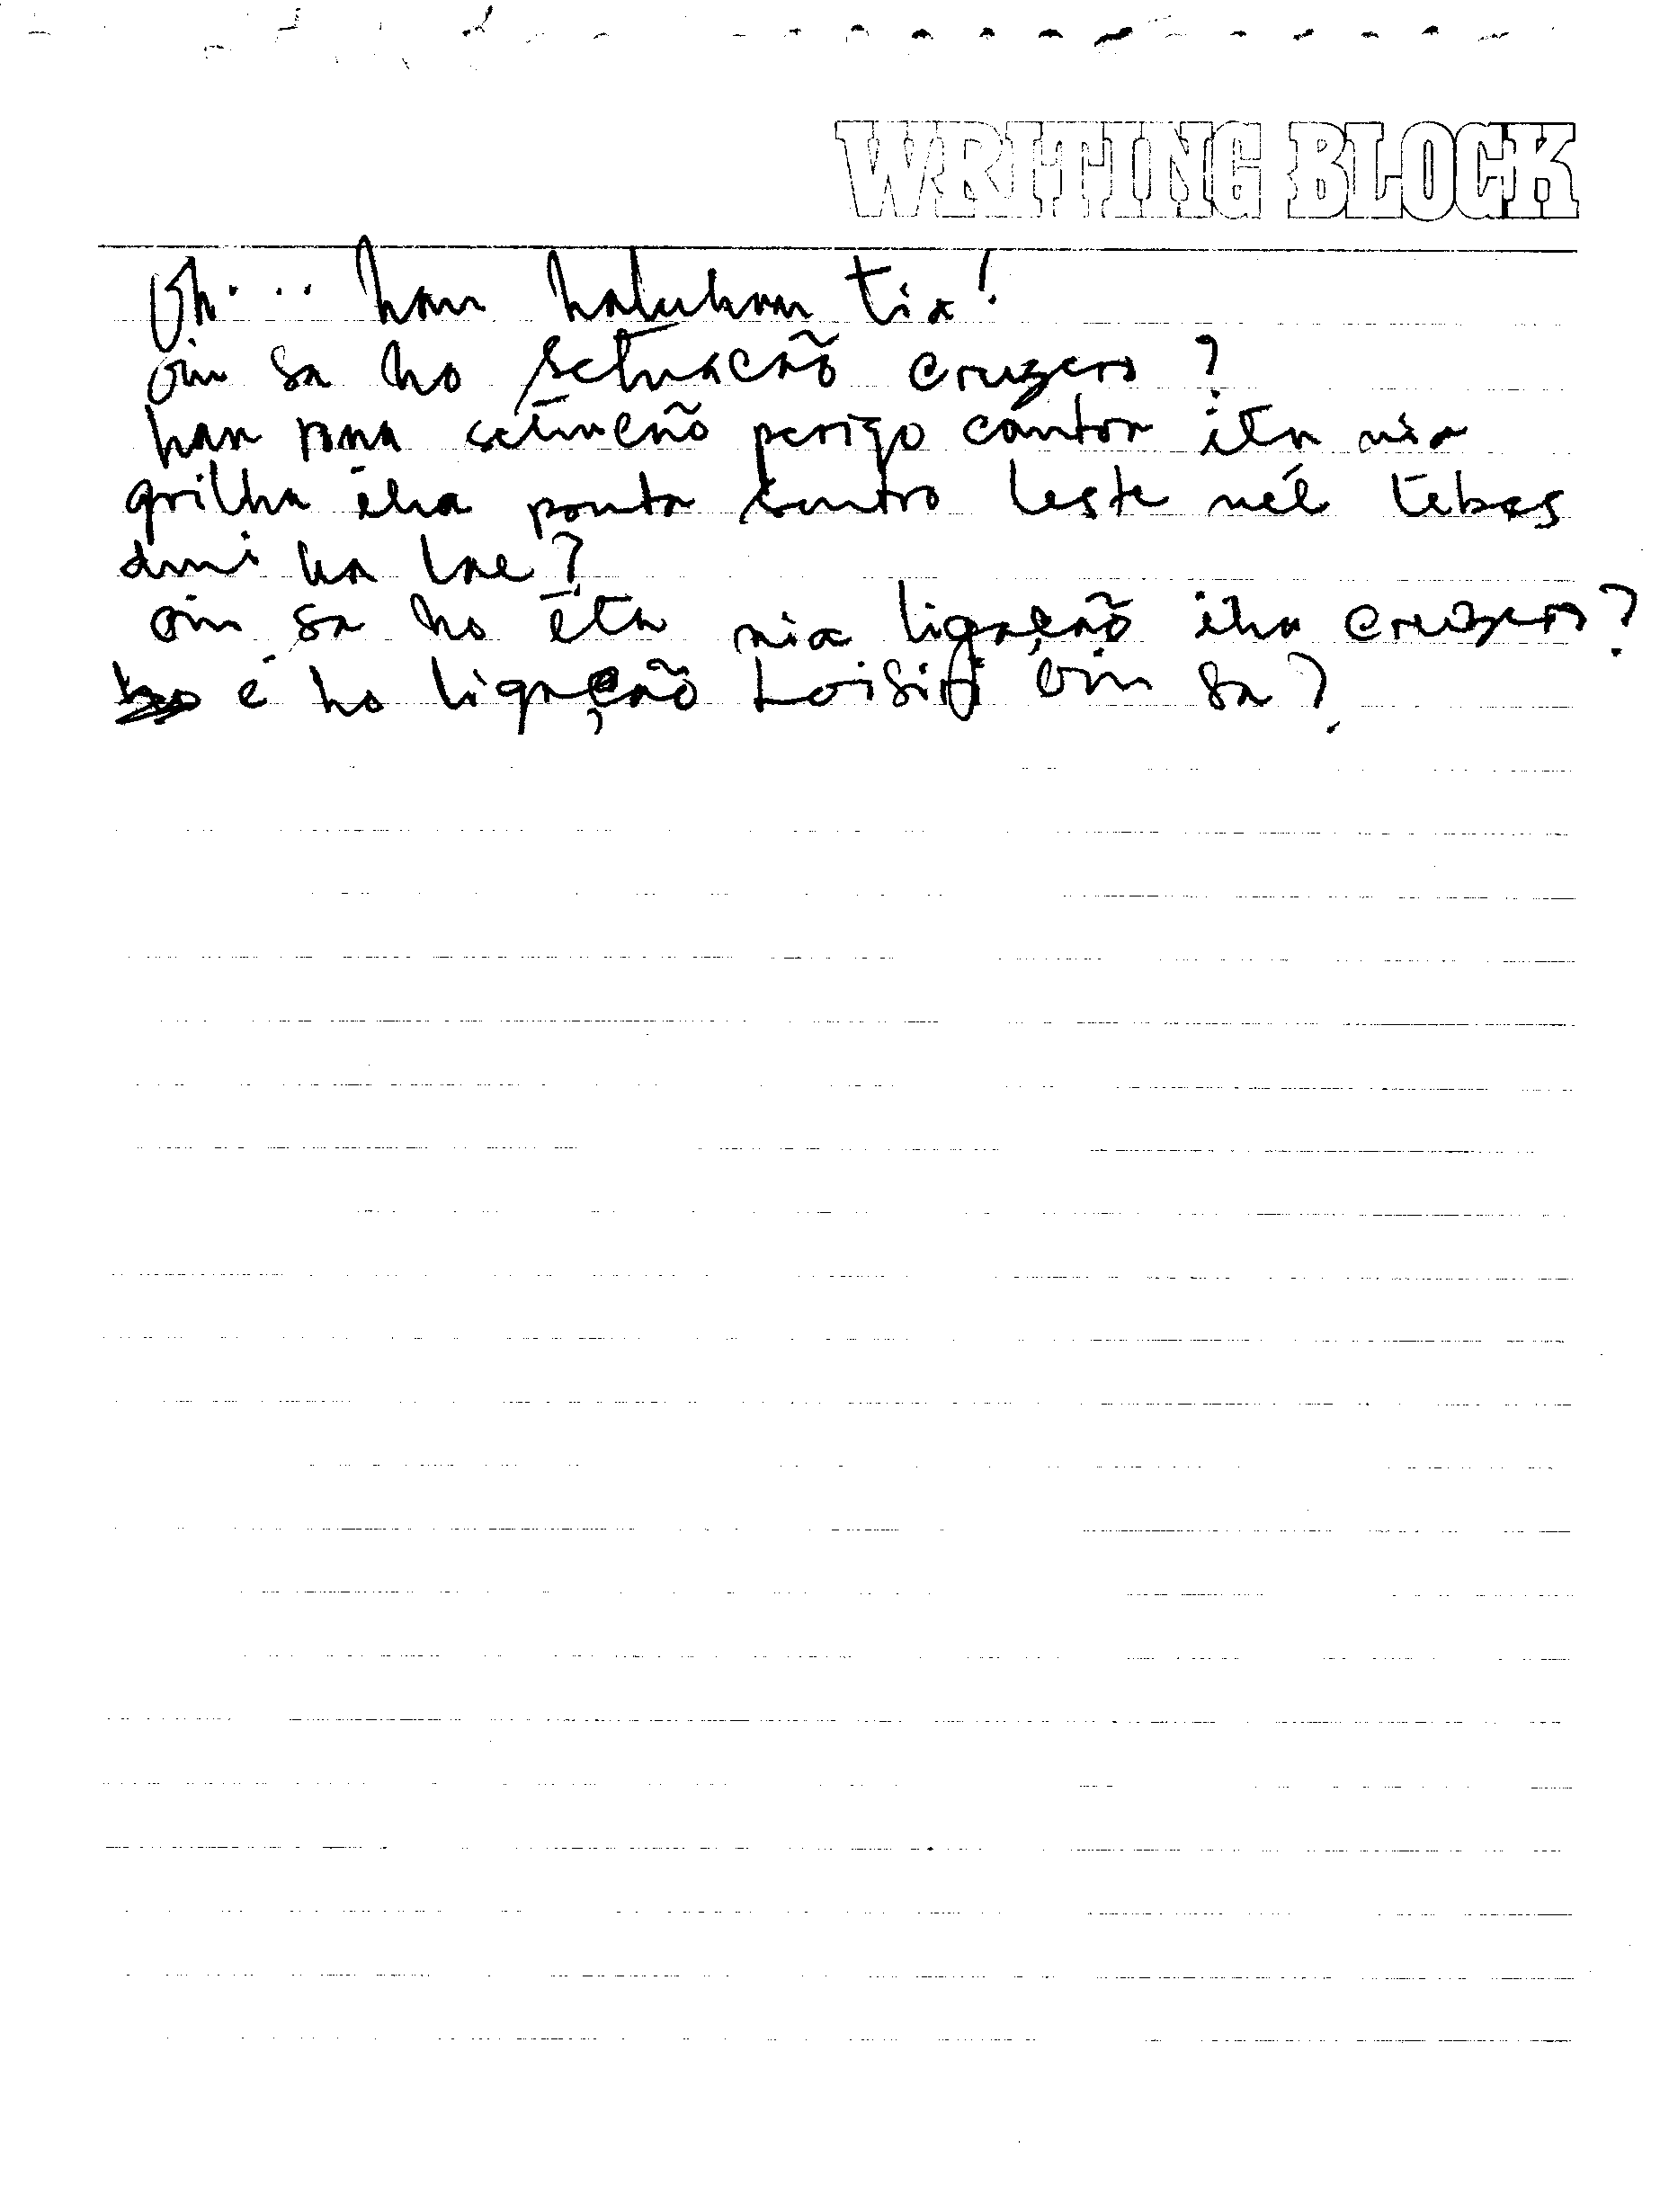 WRITING BLOCK
Oh... hau haluhan tia!
oin sa ho setuacão cruzero?
hau rona setuacão perigo cantor ita nia
grilha iha ponta leste nél tebes
duni ka lae?
oin sa ho ita nia ligação iha cruzero?
é ho ligação Loisift oin sa?